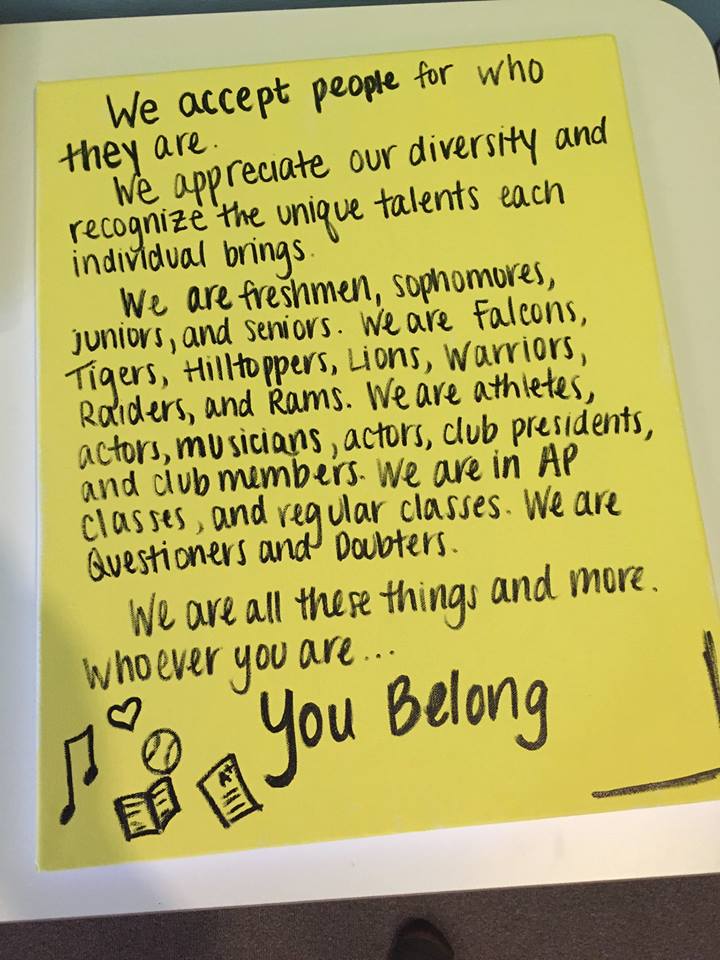 We accept people for who
they are.
We appreciate our diversity and
recognize the unique talents each
individual brings.
We are freshmen, sophomores,
juniors, and seniors. We are Falcons,
Tigers, Hilltoppers, Lions, Warriors,
Raiders, and Rams. We are athletes,
actors, musicians, actors, club presidents,
and club members. We are in AP
classes, and regular classes. We are
Questioners and Doubters.
We are all these things and more.
Whoever you are...
You Belong
A+